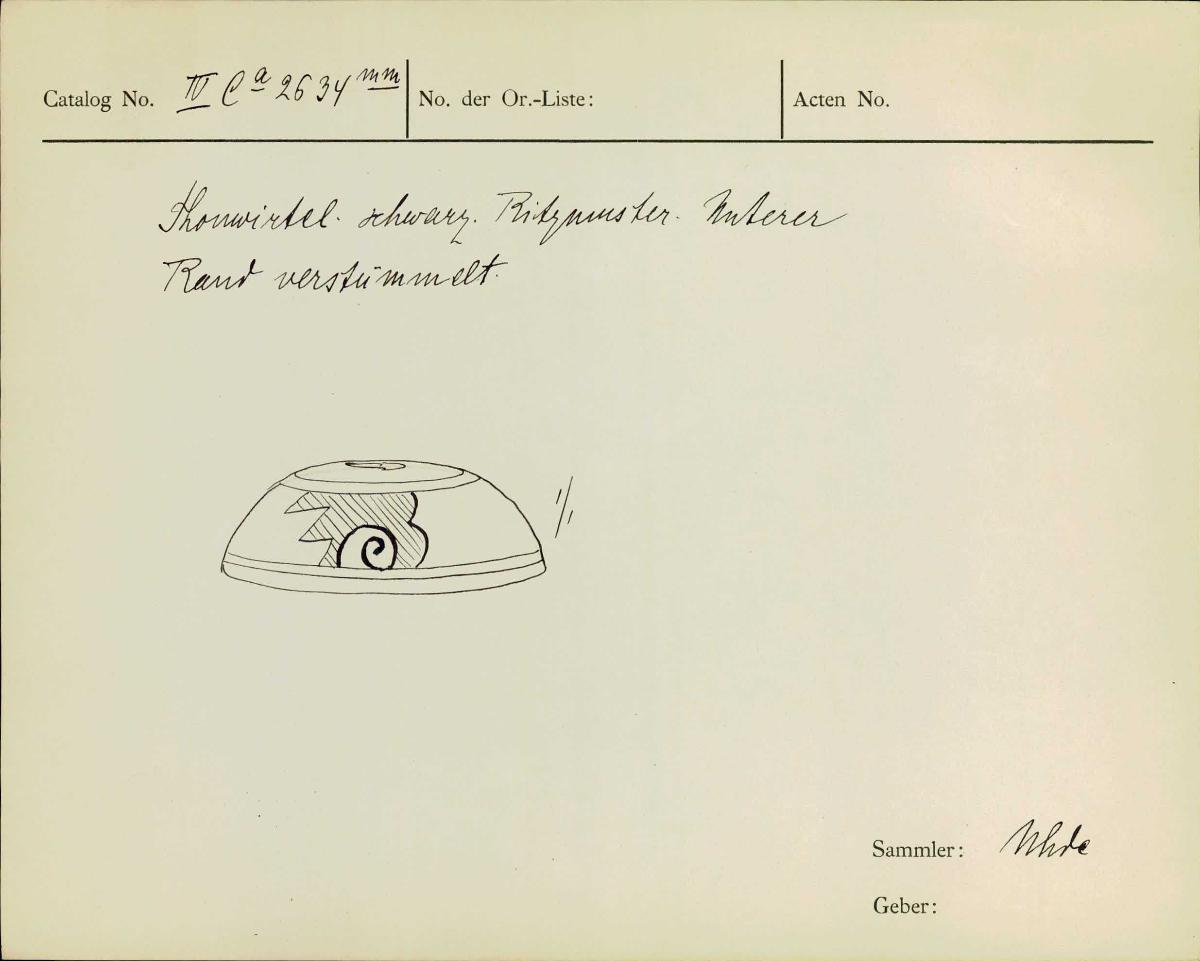 Catalog No. IV Ca 2634 mm No. der Or.-Liste: Acten No.
Thonwirtel. schwarz. Ritzmuster. Unterer
Rand verstümmelt.
1/1
Sammler: Uhde
Geber: